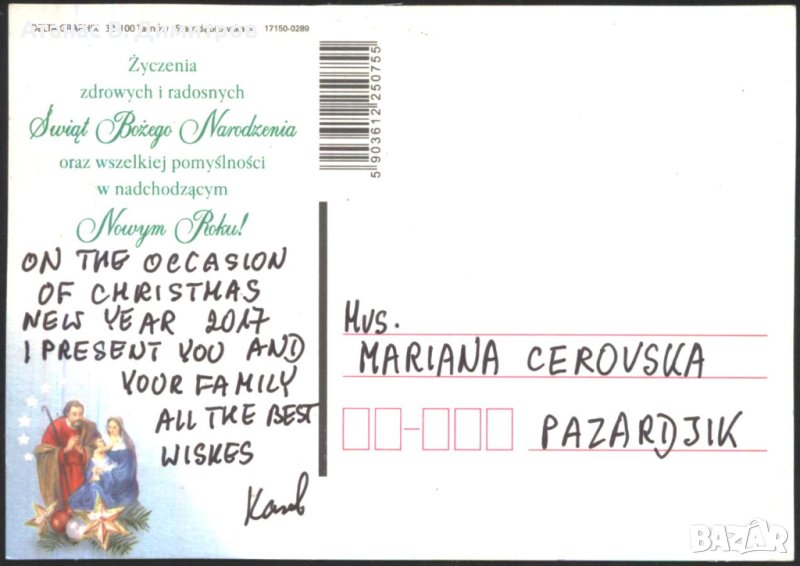 DELTA GRAPHIK 33-100 Tarnów 17150-0289
Атанас В. Димитров
Życzenia
zdrowych i radosnych
Świąt Bożego Narodzenia
oraz wszelkiej pomyślności
w nadchodzącym
Nowym Roku!
5 903612 250755
ON THE OCCASION
OF CHRISTMAS
NEW YEAR 2017
I PRESENT YOU AND
YOUR FAMILY
ALL THE BEST
WISKES
Mvs.
MARIANA CEROVSKA
PAZARDJIK
BAZAR